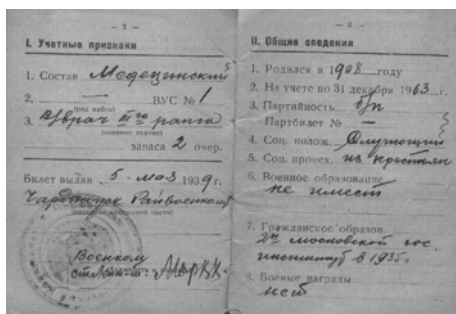 — 2 —
I. Учетные признаки
1. Состав Медецинский
2. — ВУС № 1
(род войск)
3. В/врач III го ранга
(военное звание)
запаса 2 очер.
Билет выдан 5 - мая 1939 г.
Райвоенкомат
Военком
— 3 —
II. Общие сведения
1. Родился в 1908 году
2. На учете по 31 декабря 1963 г.
3. Партийность б/п
Партбилет № —
4. Соц. полож. Служащий
5. Соц. происх. из крестьян
6. Военное образование
не имеет
7. Гражданское образов.
2й московской гос.
институт в 1935 г.
8. Боевые награды
нет